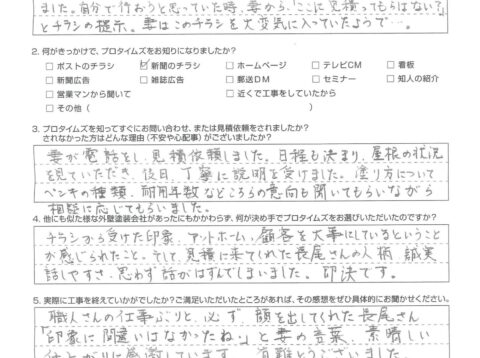 ました。自分で行おうと思っていた時、妻から、「ここに見積ってもらはない?」
とチラシの提示。妻はこのチラシを大変気に入っていたようで…。
2. 何がきっかけで、プロタイムズをお知りになりましたか?
□ポストのチラシ ☑新聞のチラシ □ホームページ □テレビCM □看板
□新聞広告 □雑誌広告 □郵送DM □セミナー □知人の紹介
□営業マンから聞いて □近くで工事をしていたから
□その他( )
3. プロタイムズを知ってすぐにお問い合わせ、または見積依頼をされましたか?
されなかった方はどんな理由(不安や心配事)がございましたか?
妻が電話をし、見積依頼しました。日程も決まり、屋根の状況
を見ていただき、後日、丁寧に説明を受けました。塗り方について
ペンキの種類、耐用年数などこちらの意向も聞いてもらいながら
相談に応じてもらいました。
4. 他にも似た様な外壁塗装会社があったにもかかわらず、何が決め手でプロタイムズをお選びいただいたのですか?
チラシから受けた印象、アットホーム、顧客を大事にしているということ
が感じられたこと。そして、見積に来てくれた長尾さんの人柄、誠実
話しやすさ、思わず話がはずんでしまいました。即決です。
5. 実際に工事を終えていかがでしたか?ご満足いただいたところがあれば、その感想をぜひ具体的にお聞かせください。
職人さんの仕事ぶりと、必ず顔を出してくれた長尾さん
「印象に間違いはなかったね。」と妻の言葉、素晴しい
仕上がりに感激しています。有難とうございました。